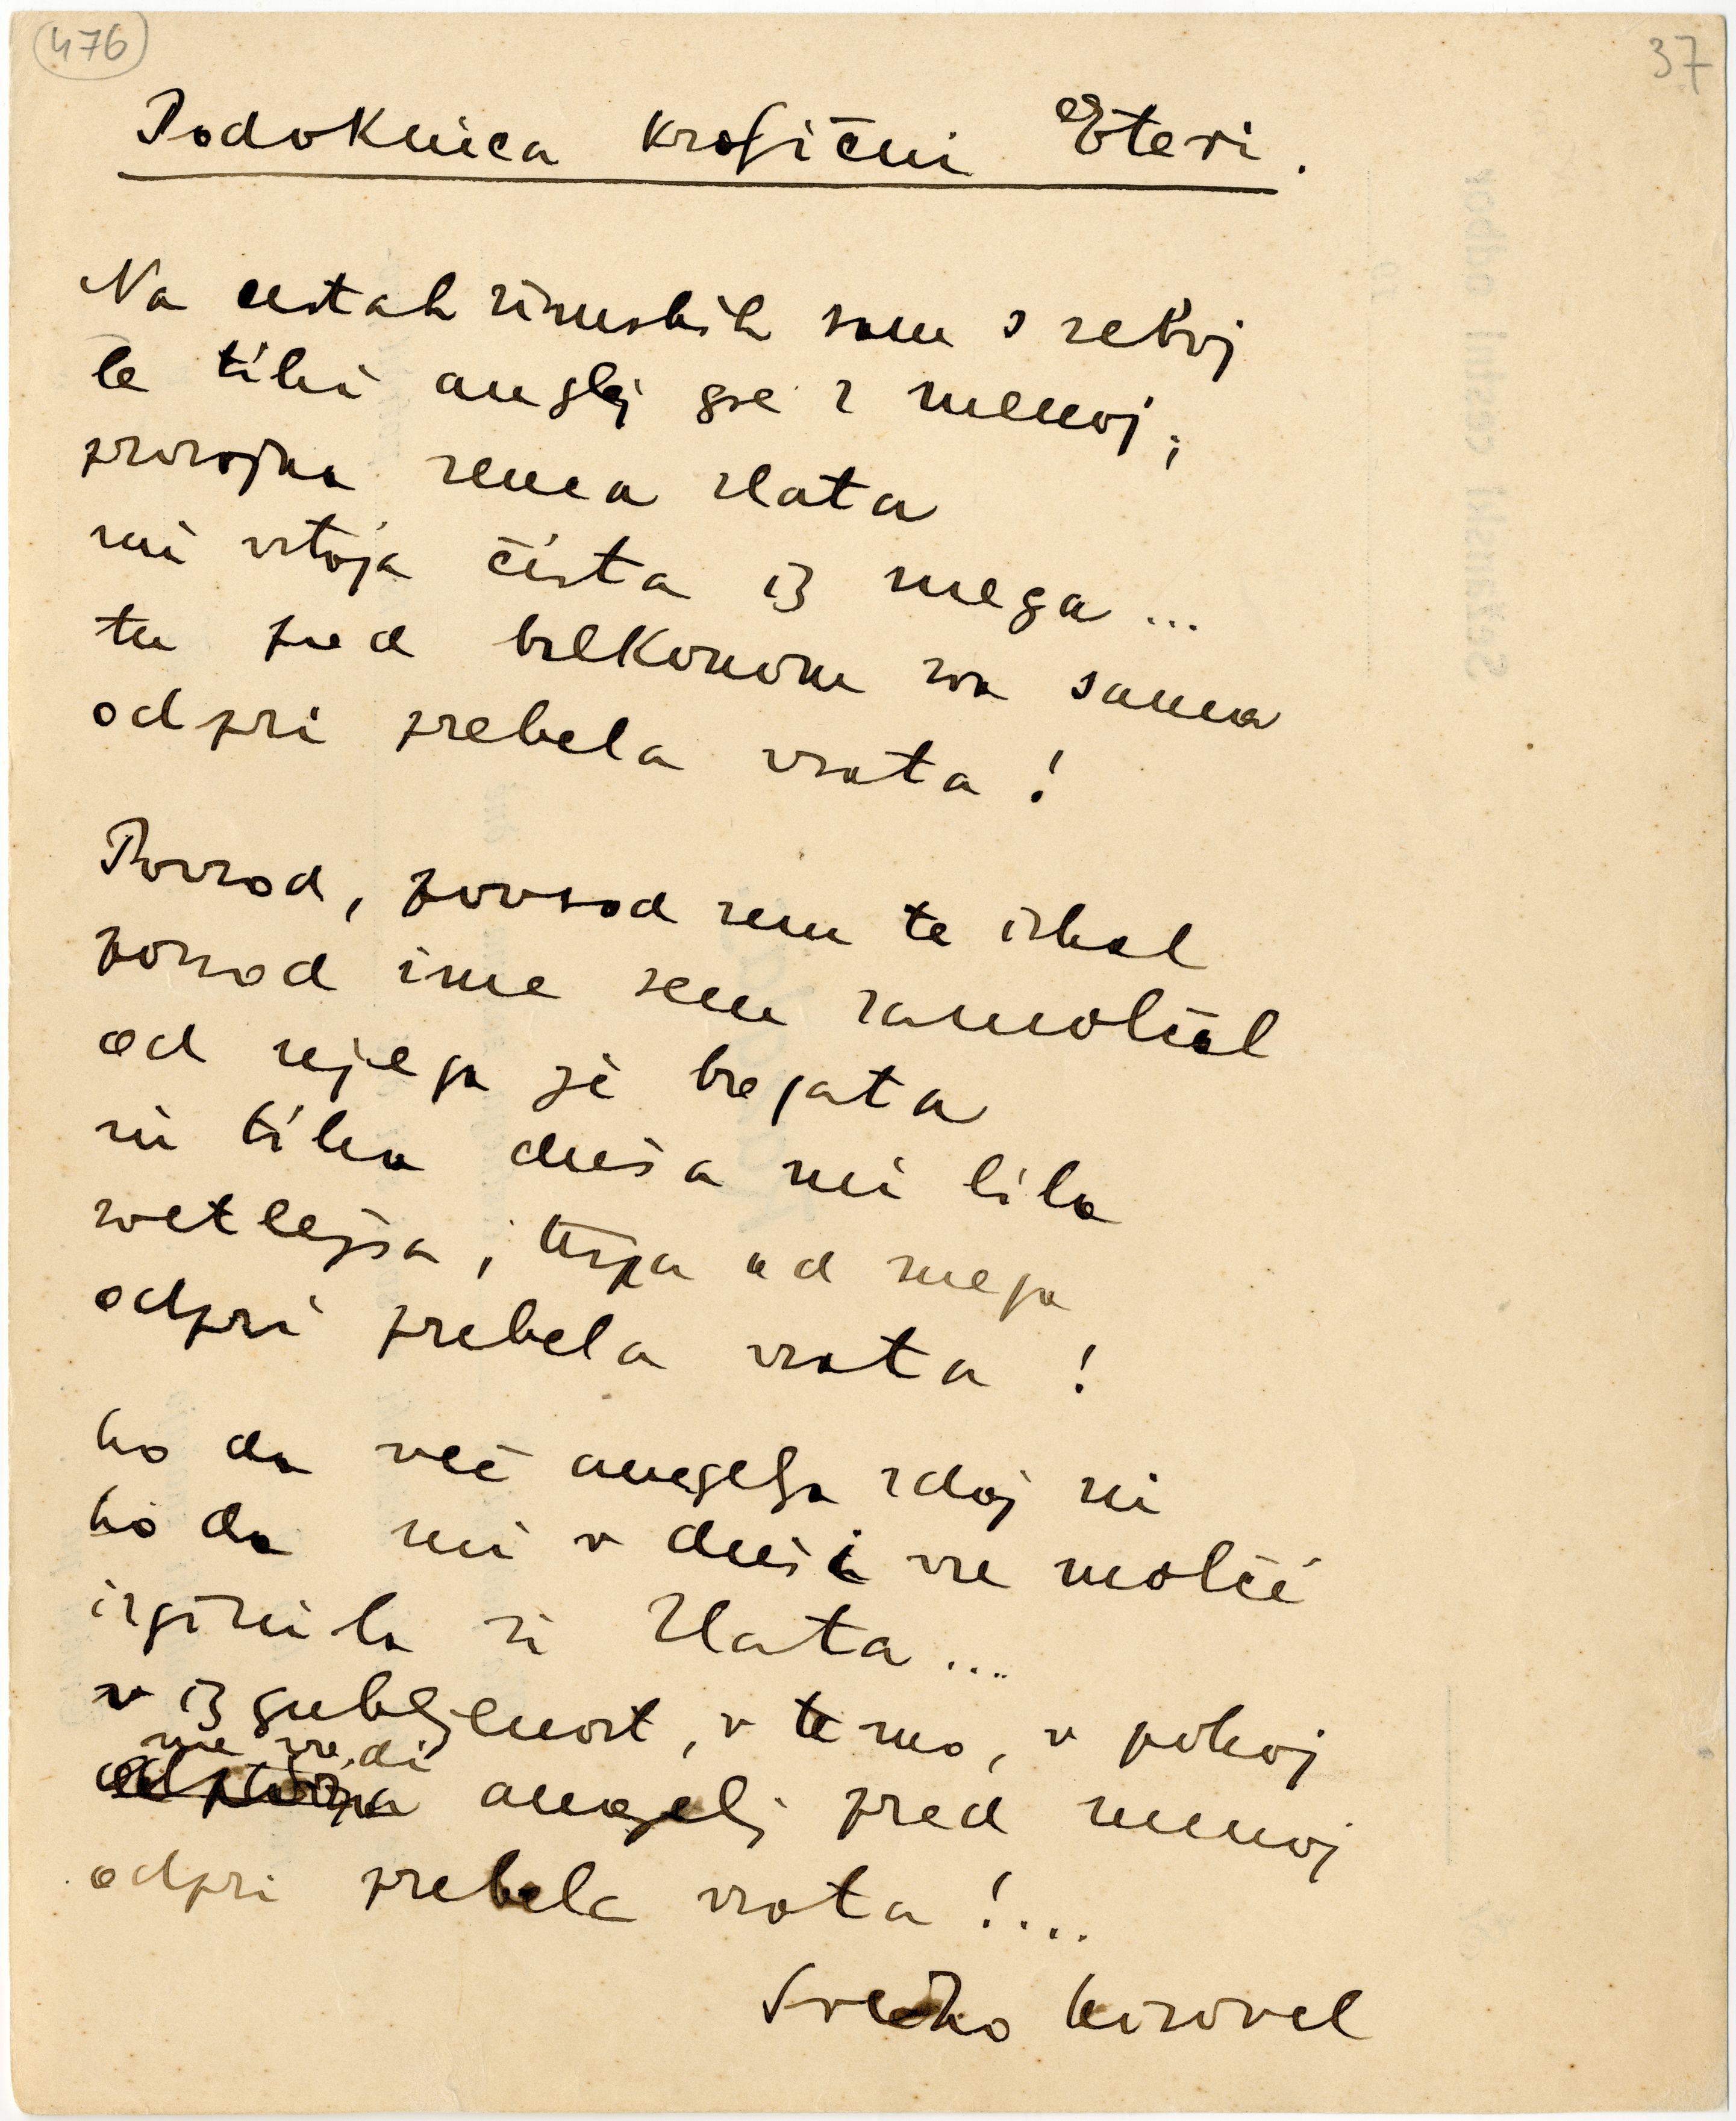 476
37
Podoknica krofični Eteri.
Na cestah zimskih sam s seboj
le tihi anglj gre z menoj,
prosojna senca zlata
mi vstaja čista iz mega...
tu pred balkonom sva sama
odpri prebela vrata!
Povsod, povsod sem te iskal
povsod ime sem zamolčal
od njega si bogata
ni tiha duša mi bila
svetlejša, tišja od mega
odpri prebela vrata!
ko da več angelja zdaj ni
ko da mi v duši vse molči
izginila si Zlata...
v izgubljenost, v temo, v pokoj
me vodi
angelj pred menoj
odpri prebela vrata!...
Srečko Kosovel